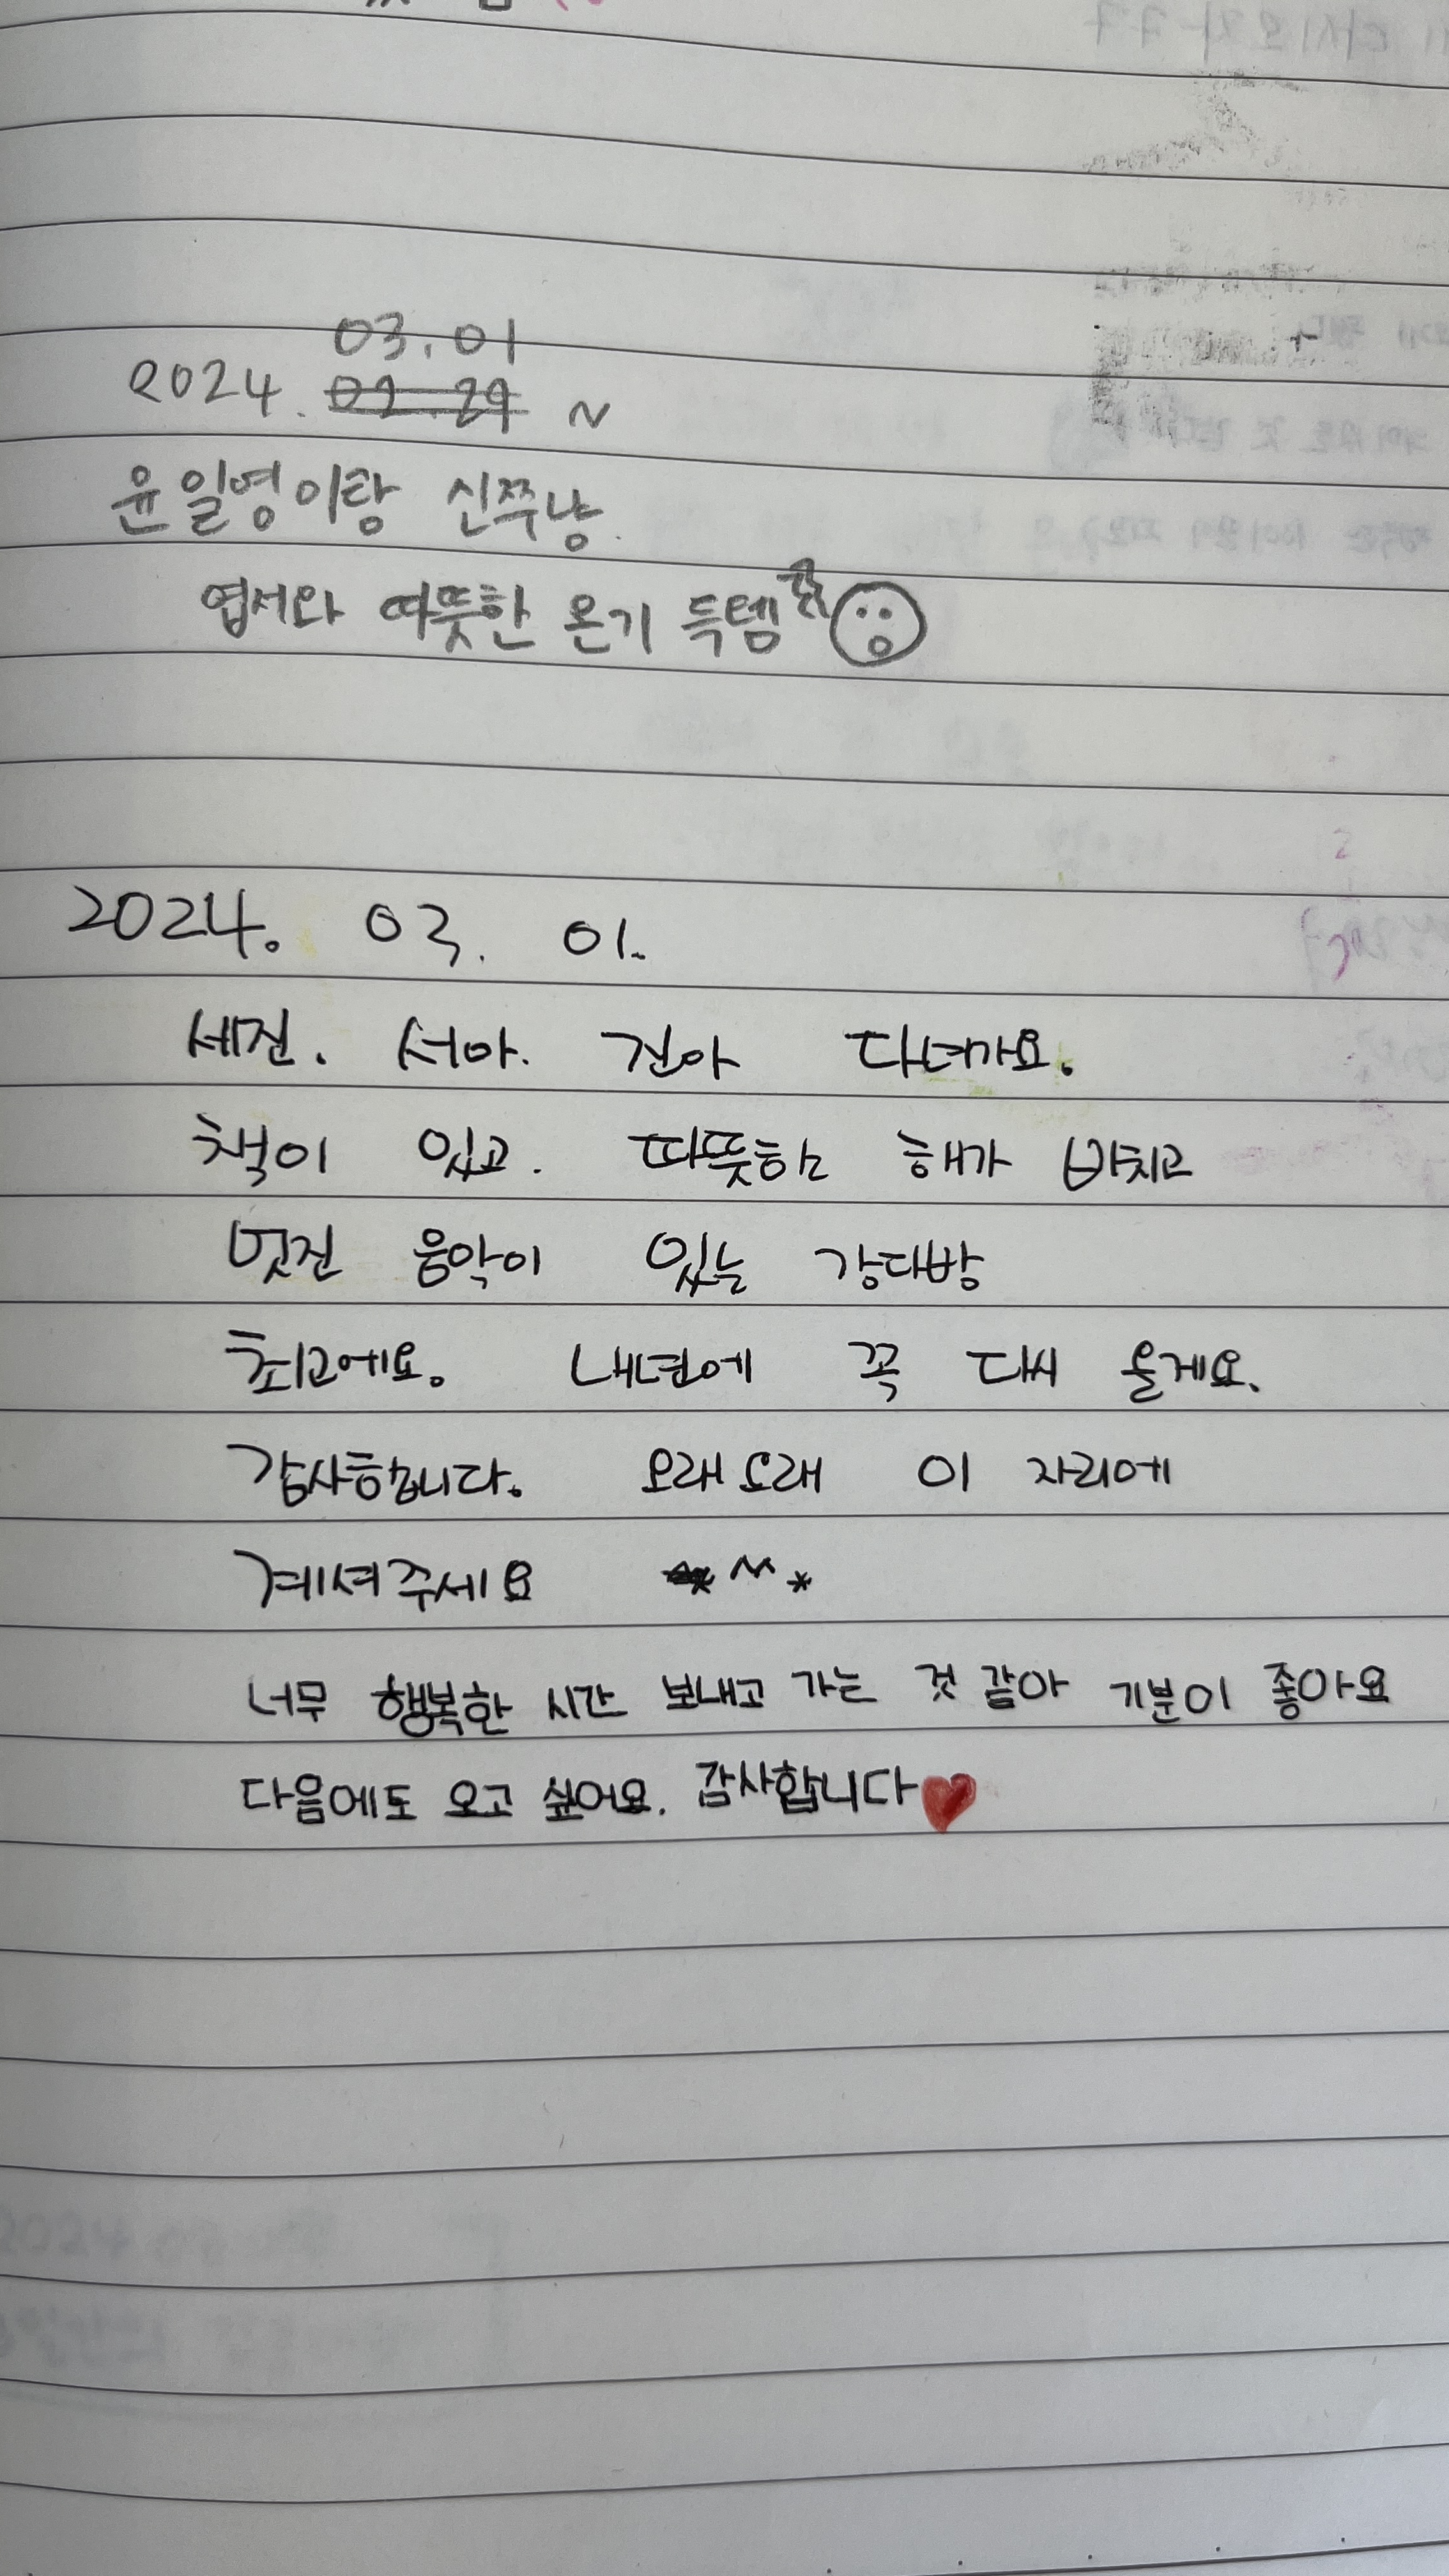 03.01
2024. 02.29 ~
윤일영이랑 신쭈낭.
엽서와 따뜻한 온기 득템
2024. 03. 01.
세진. 서아. 건아 다녀가요.
책이 있고. 따뜻함 해가 비치고
멋진 음악이 있는 강다방
최고에요. 내년에 꼭 다시 올게요.
감사합니다. 오래오래 이 자리에
계셔주세요 *^^*
너무 행복한 시간 보내고 가는 것 같아 기분이 좋아요
다음에도 오고 싶어요. 감사합니다♥